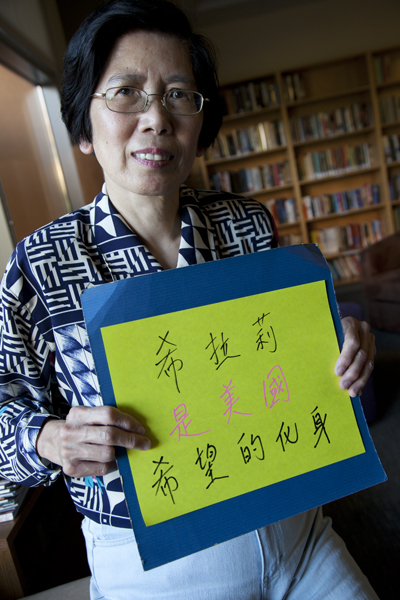 希拉莉
是美國
希望的化身